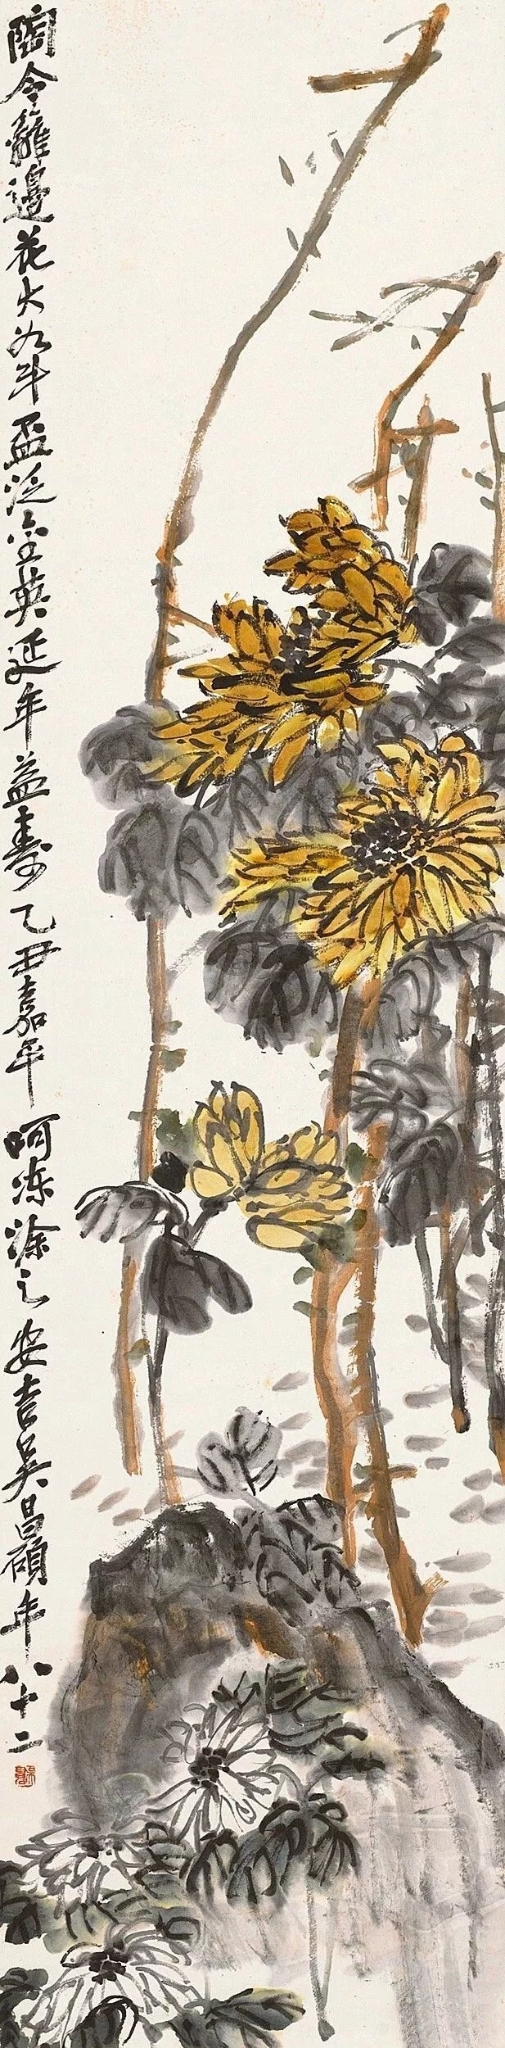 陶令籬邊花大如斗盃泛金英延年益壽乙丑嘉平呵凍塗之安吉吳昌碩年八十二